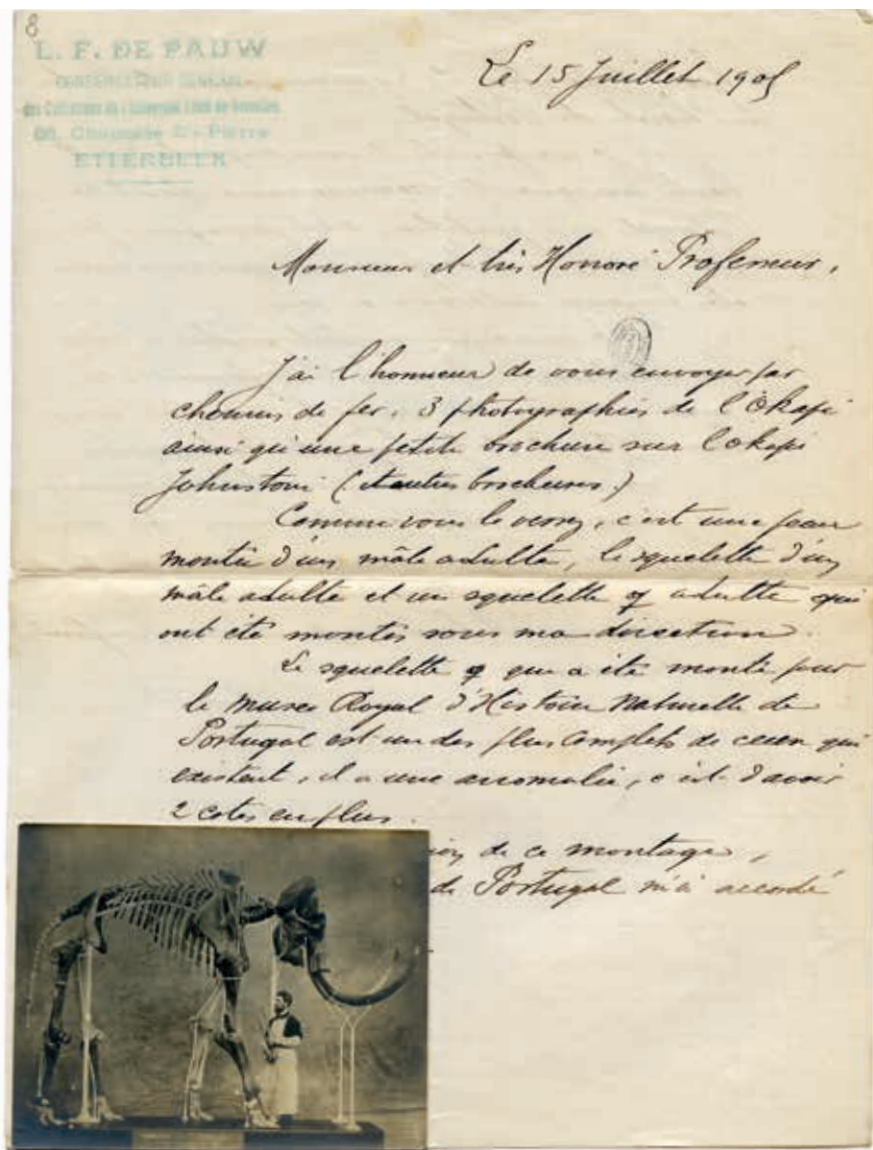 8
L. F. DE PAUW
CONSERVATEUR GÉNÉRAL
des Collections de l'Université Libre de Bruxelles
Chaussée St. Pierre
ETTERBEEK
Le 15 Juillet 1905
Monsieur et très Honoré Professeur,
J'ai l'honneur de vous envoyer par
chemin de fer, 3 photographies de l'Okapi
ainsi qu'une petite brochure sur l'okapi
Johnstoni (et autres brochures.)
Comme vous le verrez, c'est une peau
montée d'un mâle adulte, le squelette d'un
mâle adulte et un squelette ♀ adulte qui
ont été montés sous ma direction.
Le squelette ♀ qui a été monté pour
le musée Royal d'Histoire Naturelle de
Portugal est un des plus complets de ceux qui
existent, il a une anomalie, c'est d'avoir
2 cotes en plus.
de ce montage,
de Portugal m'a accordé